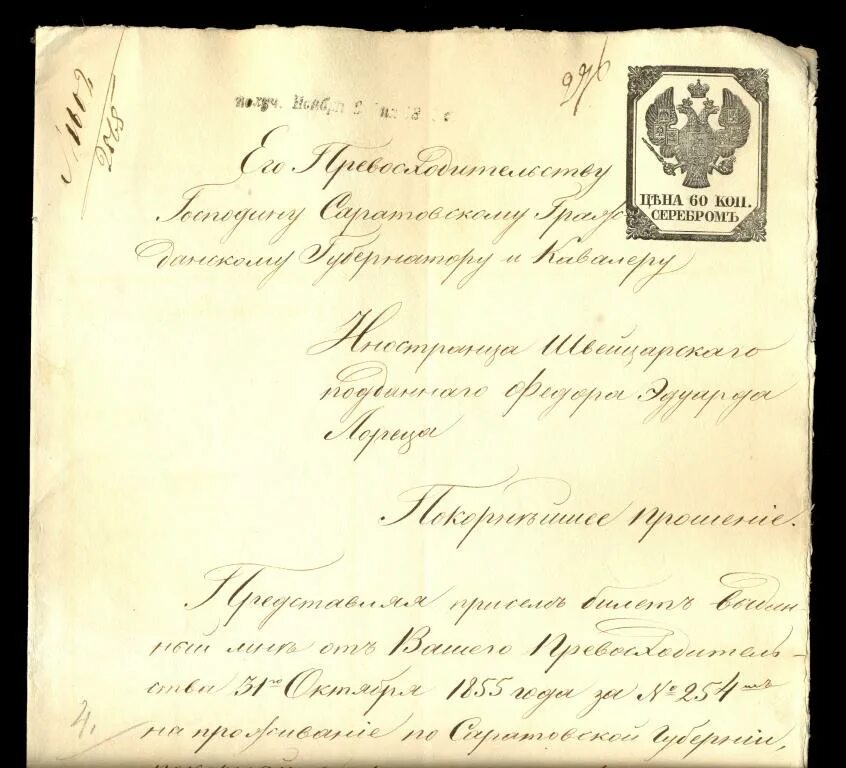 № 1602
2068
276
получ. Ноябр
ЦѢНА 60 КОП.
СЕРЕБРОМЪ
Его Превосходительству
Господину Саратовскому Граж
данскому Губернатору и Кавалеру
Иностранца Швейцарскаго
подданнаго Федора Эдуарда
Лореца
Покорнѣйшее прошеніе.
Представляя присемъ билетъ выдан-
ный мнѣ отъ Вашего Превосходитель-
ства 31го Октября 1855 года за № 254мъ
на проживаніе по Саратовской Губерніи,
4.